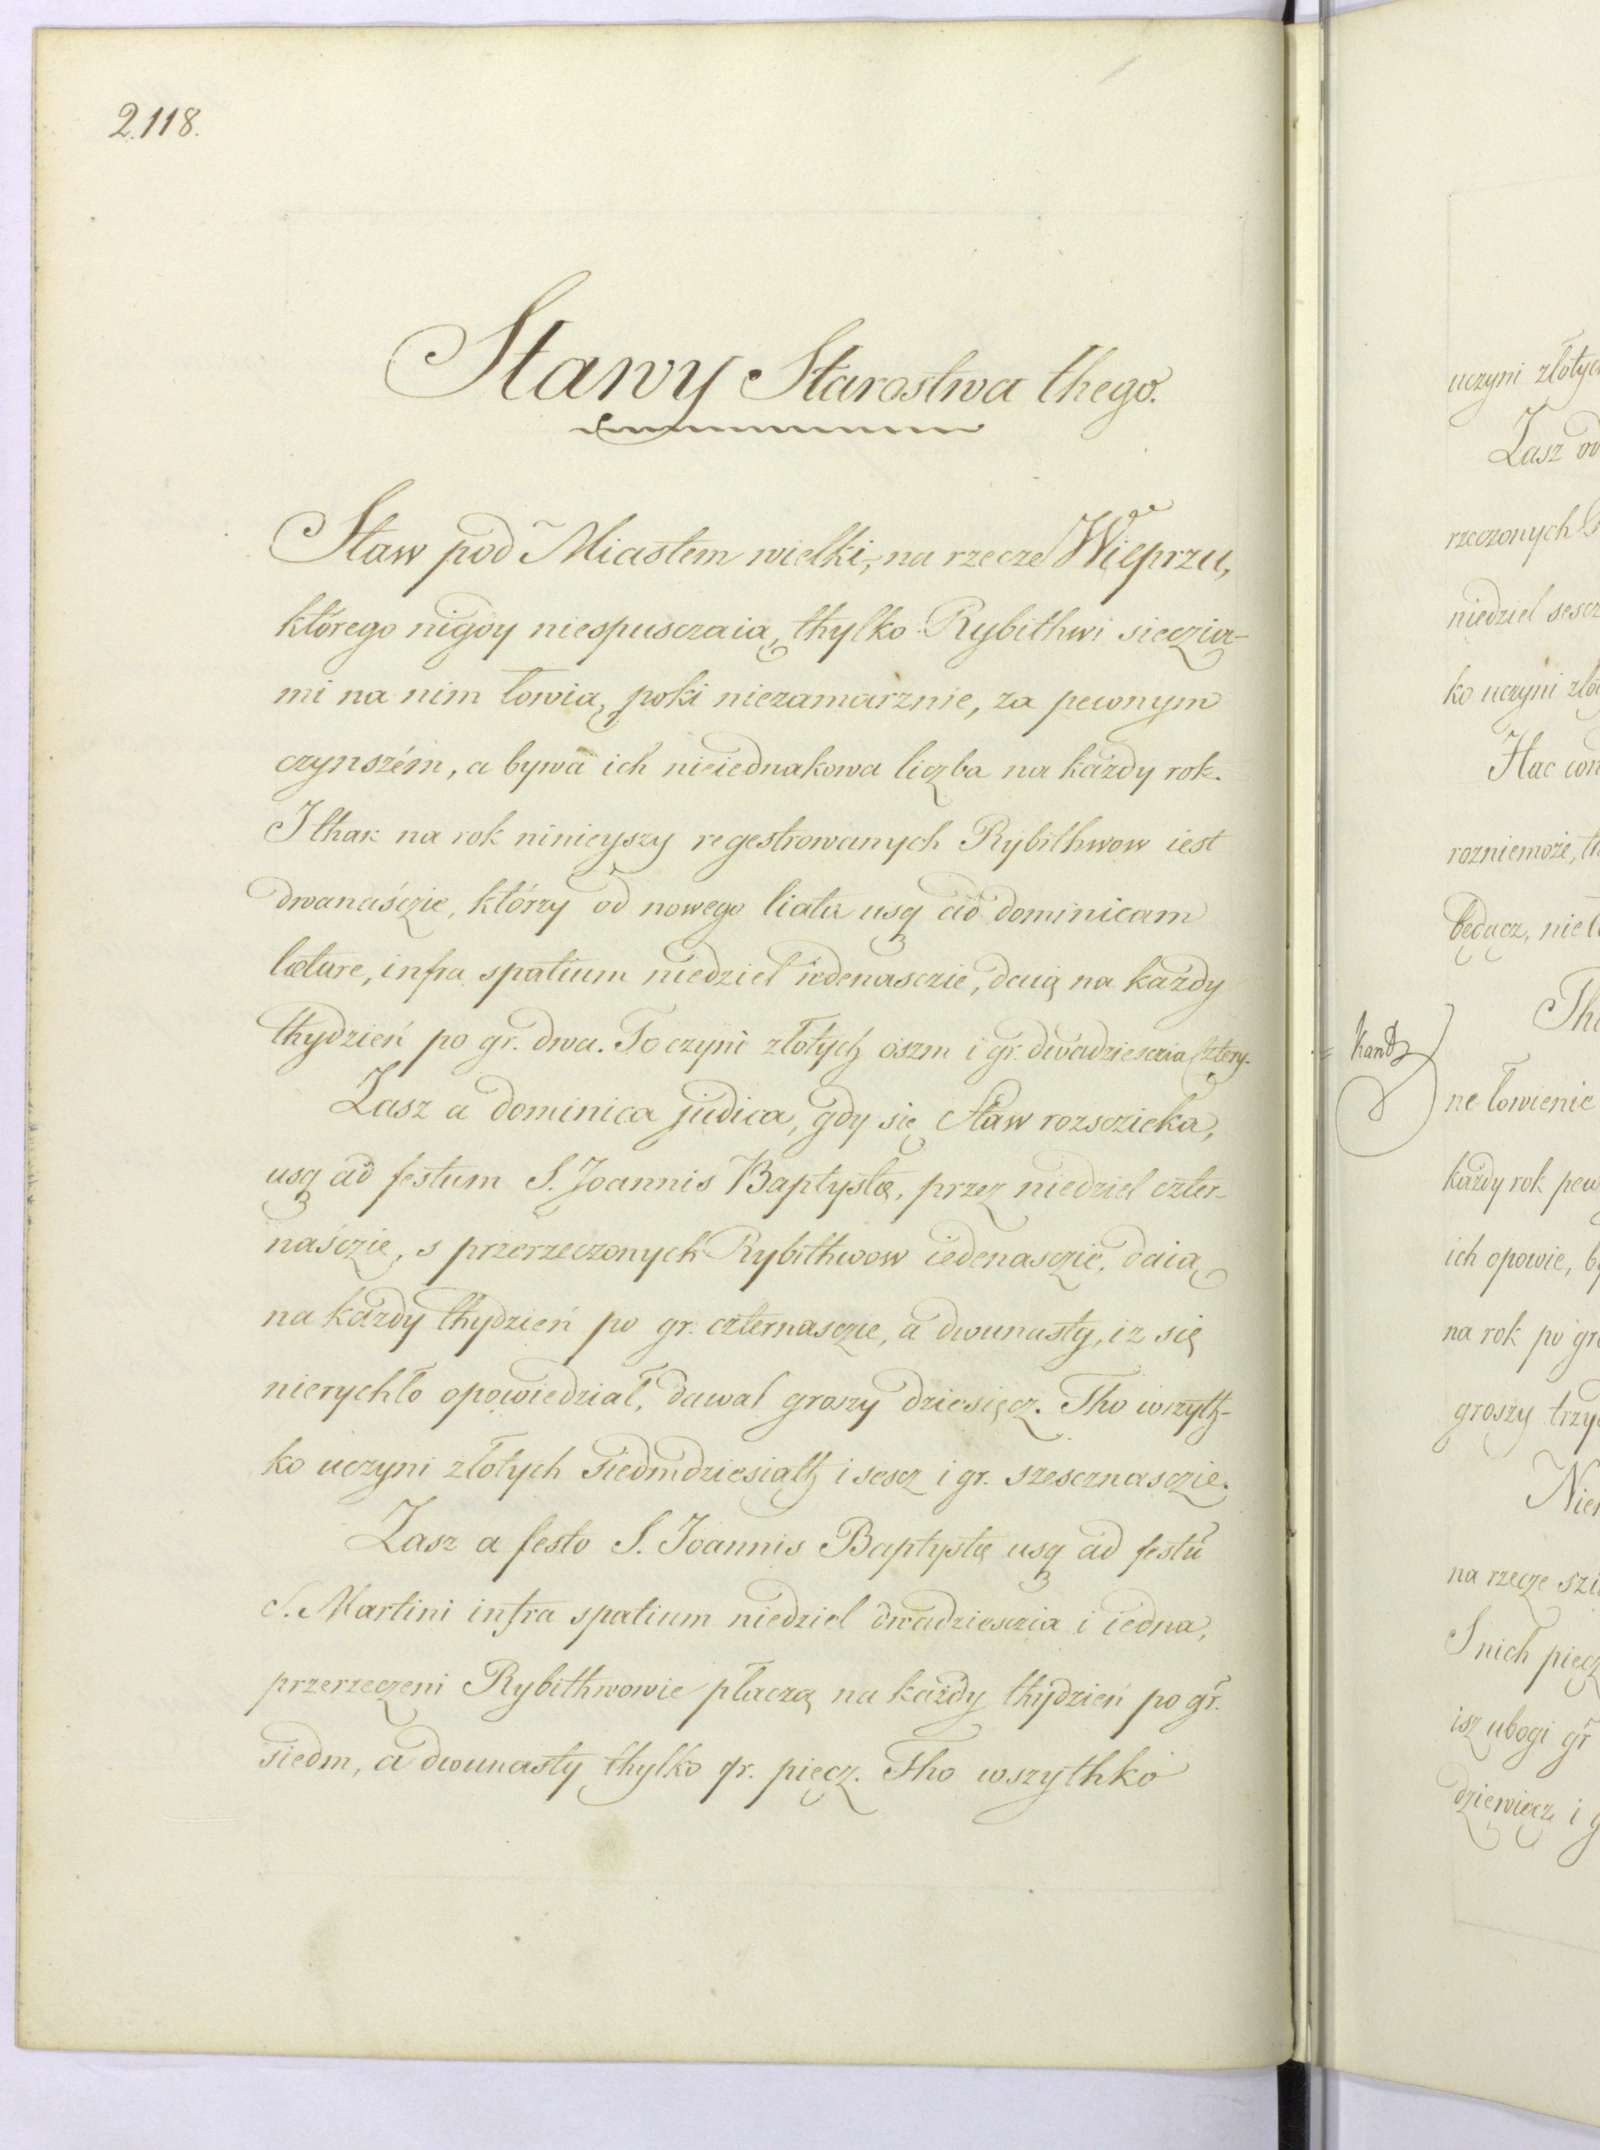 2118.
Stawy Starostwa thego.
Staw pod Miastem wielki, na rzecze Wieprzu,
którego nigdy niespusczaią, thylko Rybithwi sieczia-
mi na nim łowią, poki niezamarznie, za pewnym
czynszém, a bywa ich nieiednakowa liczba na każdy rok.
I thak na rok ninieyszy regestrowanych Rybithwow iest
dwanaśczie, którzy od nowego liata usq ad dominicam
lætare, infra spatium niedziel iedenasczie, daią na każdy
thydzień po gr. dwa. To czyni złotych oszm i gr. dwadziesczia cztery.
Zasz a dominica judica, gdy się Staw rozsczieka,
usq ad festum S. Joannis Baptystæ, przez niedziel czter-
naśczie, s przerzeczonych Rybithwow iedenasczie, daią
na każdy thydzień po gr. czternasczie, a dwunasty, iz się
nierychło opowiedział, dawał groszy dziesięcz. Tho wszyth-
ko uczyni złotych siedmdziesiąth i sescz i gr. szescznasczie.
Zasz a festo S. Joannis Baptystæ usq ad festū
S. Martini infra spatium niedziel dwadziesczia i iedna,
przerzeczeni Rybithwowie płaczą na każdy thydzień po gr.
siedm, a dwunasty thylko gr. pięcz. Tho wszythko
uczyni złotych
Zasz od
rzeczonych
niedziel sescz
ko uczyni zło
Hac con
rozniemoże, th
będącz, niel
Tho
ne łowienie
każdy rok pew
ich opowie, by
na rok po gro
groszy trzy
Nie
na rzecze szi
S nich pięcz
isz ubogi gr
dziewięcz i g